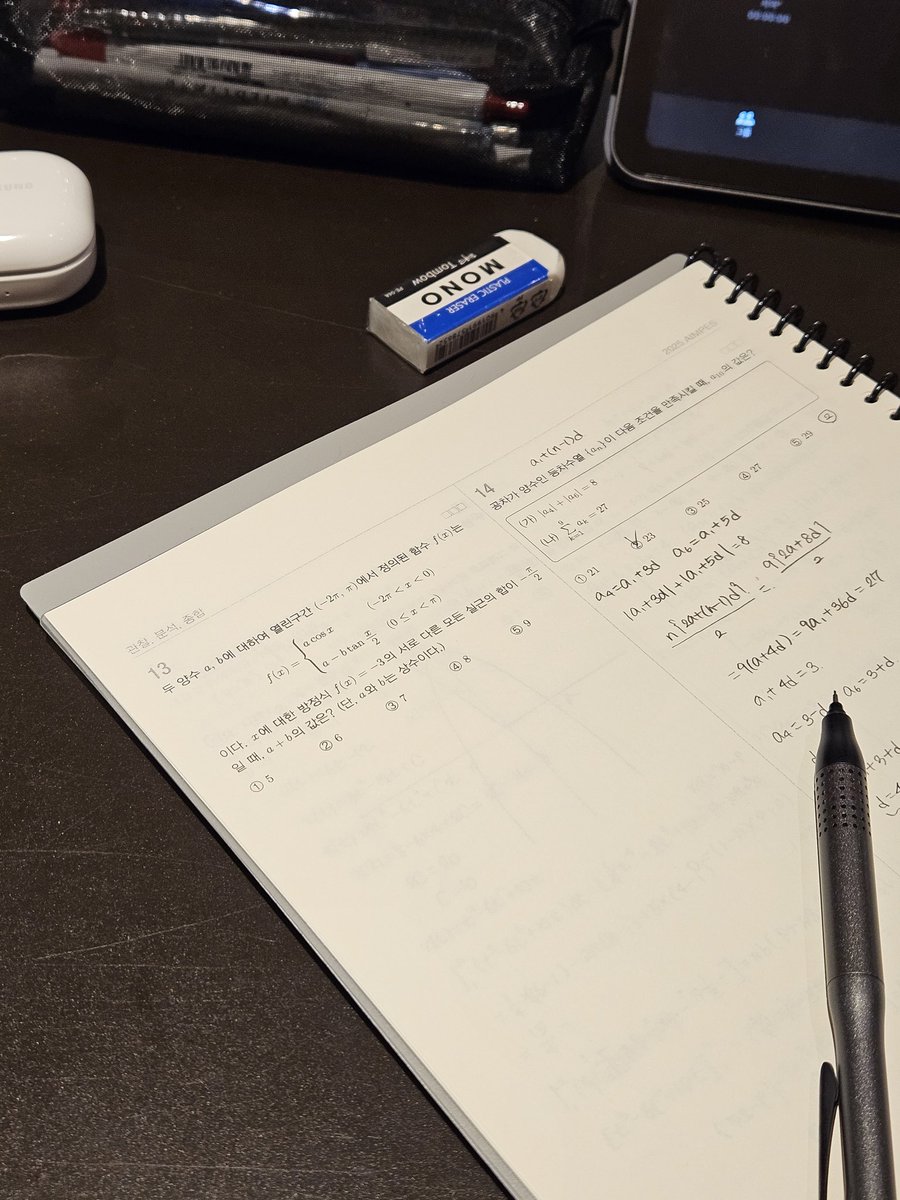 SUNG
그룹
Tombow
MONO
PLASTIC ERASER
PE-04A
2025 AIMPES
관찰, 분석, 종합
13
두 양수 a, b에 대하여 열린구간 (-2π, π)에서 정의된 함수 f(x)는
f(x) = { a cos x (-2π < x < 0)
a - b tan x/2 (0 ≤ x < π)
이다. x에 대한 방정식 f(x) = -3의 서로 다른 모든 실근의 합이 -π/2
일 때, a + b의 값은? (단, a와 b는 상수이다.)
① 5 ② 6 ③ 7 ④ 8 ⑤ 9
14
a₁+(n-1)d
공차가 양수인 등차수열 {aₙ}이 다음 조건을 만족시킬 때, a₁₀의 값은?
(가) |a₄| + |a₆| = 8
(나) ∑ aₖ = 27
① 21 ② 23 ③ 25 ④ 27 ⑤ 29
②
a₄=a₁+3d a₆=a₁+5d
|a₁+3d|+|a₁+5d|=8
n{2a+(n-1)d}/2 = 9{2a+8d}/2
=9(a+4d)=9a₁+36d=27
a₁+4d=3.
a₄=3-d a₆=3+d
+3+d
d=4